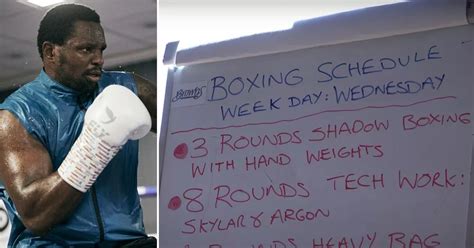 BOXING SCHEDULE
WEEK DAY: WEDNESDAY
3 ROUNDS SHADOW BOXING
WITH HAND WEIGHTS
8 ROUNDS TECH WORK:
SKYLAR & ARGON
ROUNDS HEAVY BAG